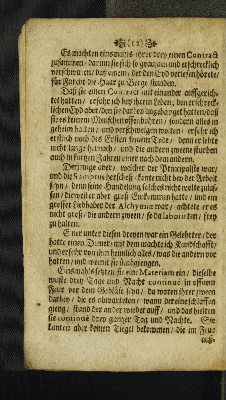 (12)
Es machten einsmahls ihrer drey einen Contract
zusammen / darum sie sich so grausam und erschrecklich
verschwuren / daß einem / der den Eyd verlesen hörete /
für Furcht die Haar zu Berge stunden.
Daß sie einen Contract mit einander auffgerich-
tet hatten / erfuhr ich bey ihrem Leben; den erschreck-
lichen Eyd aber / den sie darbey
keinem Menschen / sondern alles in
geheim halten / und verschweigen wolten / erfuhr ich
erstlich nach des Ersten seinem Tode / denn er lebte
nicht lange hernach / und die andern zweene sturben
auch in kurtzen Jahren einer nach dem andern.
Derjenige aber / welcher der Principalste war /
und die herschoß / konte nicht bey der Arbeit
seyn / denn seine Handelung solches nicht wolte zulas-
sen / dieweil er aber groß Einkommen hatte / und ein
grosser Liebhaber der Alchymie war / achtete er es
nicht groß / die andern zween / so da laborirten / frey
zu halten.
Einer unter diesen dreyen war ein Gelehrter / der
hatte einen Diener / mit dem machte ich Kundschafft /
und erfuhr von ihm heimlich alles / was die andern vor
hatten / und womit sie umbgiengen.
Einsmahls setzten sie eine Materiam ein / dieselbe
muste drey Tage und Nacht continuè in offnem
Feuer vor dem Gebläse seyn / da worten ihrer zween
darbey / die es abwarteten / wann der eine schlaffen
gieng / stund der ander wieder auff / und das hielten
sie continuè drey gantzer Tag und Nächte. Sie
kunten aber keinen Tiegel bekommen / die im Feu-